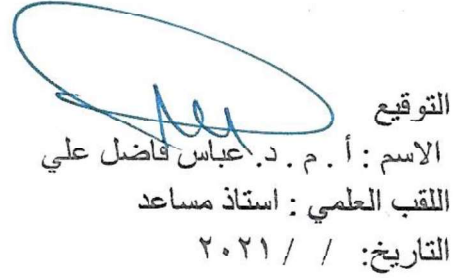 التوقيع
الاسم : أ . م . د. عباس فاضل علي
اللقب العلمي : استاذ مساعد
التاريخ: / / ٢٠٢١